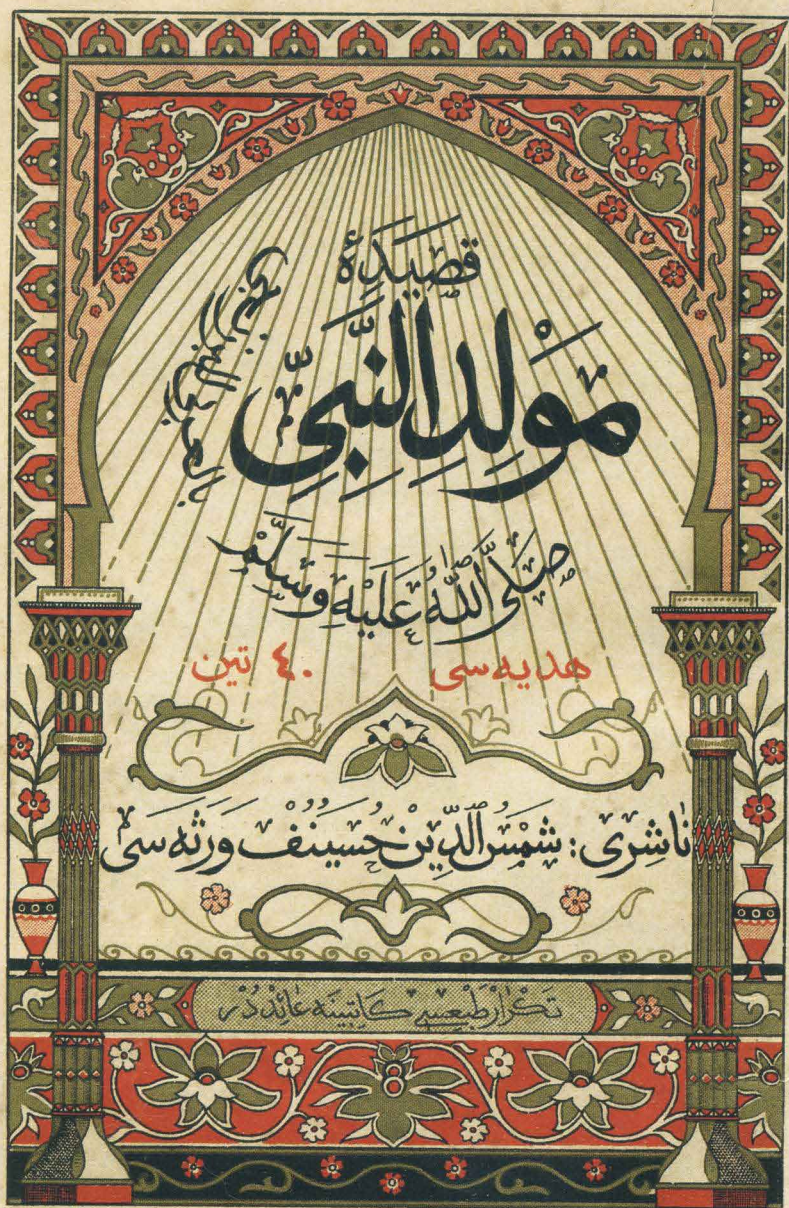 قصيدۀ
مَوْلِدِ النَّبِىِّ
صَلَّى اللّٰهُ عَلَيْهِ وَسَلَّمْ
هديه سى ٤٠ تين
ناشرى: شمس الدين حسينف ورثه سى
تكرار طبعسى كاتبينه عائددر